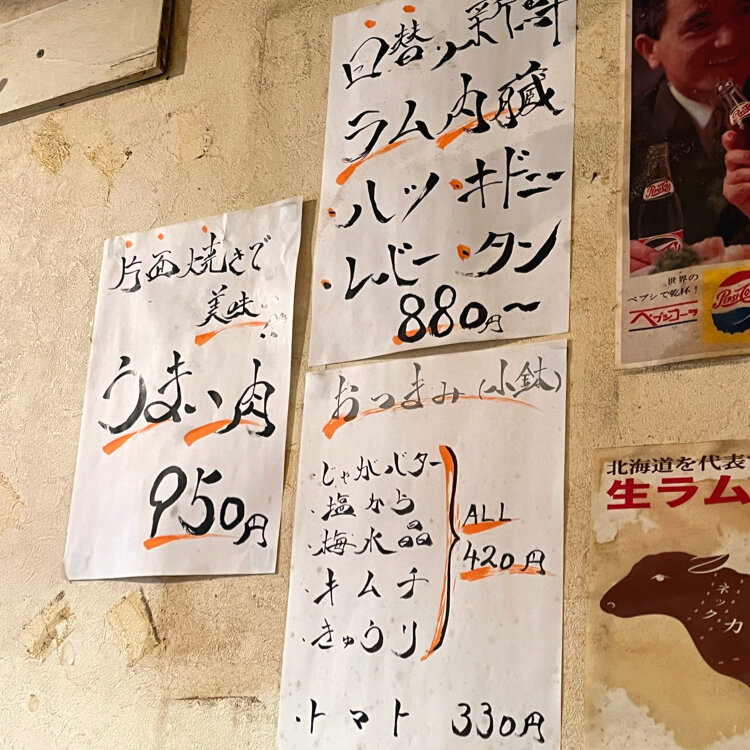 日替り新鮮
ラム内臓
・ハツ・キドニー
・レバー・タン
880円〜
片面焼きで
美味い
うまい肉
950円
おつまみ(小鉢)
・じゃがバター
・塩から
・梅水晶
・キムチ
・きゅうり
ALL
420円
・トマト 330円
世界の
ペプシで乾杯!
ペプシコーラ
Pepsi-Co
北海道を代表
生ラム
ネック
カ